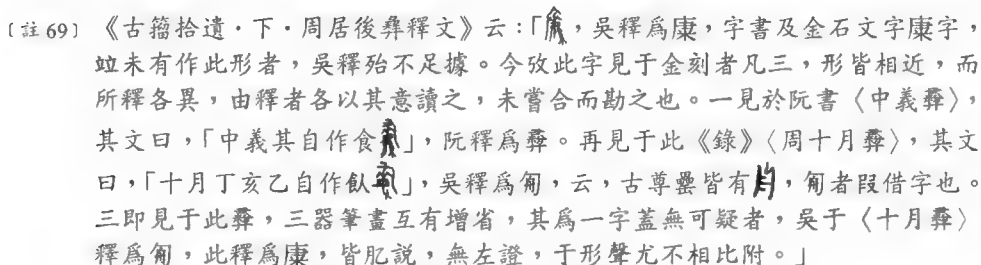 〔註69〕《古籀拾遺．下．周居後彝釋文》云：「，吳釋爲康，字書及金石文字康字，
竝未有作此形者，吳釋殆不足據。今攷此字見于金刻者凡三，形皆相近，而
所釋各異，由釋者各以其意讀之，未嘗合而勘之也。一見於阮書〈中義彝〉，
其文曰，「中義其自作食」，阮釋爲彝。再見于此《錄》〈周十月彝〉，其文
曰，「十月丁亥乙自作飤」，吳釋爲匔，云，古尊罍皆有，匔者叚借字也。
三即見于此彝，三器筆畫互有增省，其爲一字蓋無可疑者，吳于〈十月彝〉
釋爲匔，此釋爲康，皆肊説，無左證，于形聲尤不相比附。」